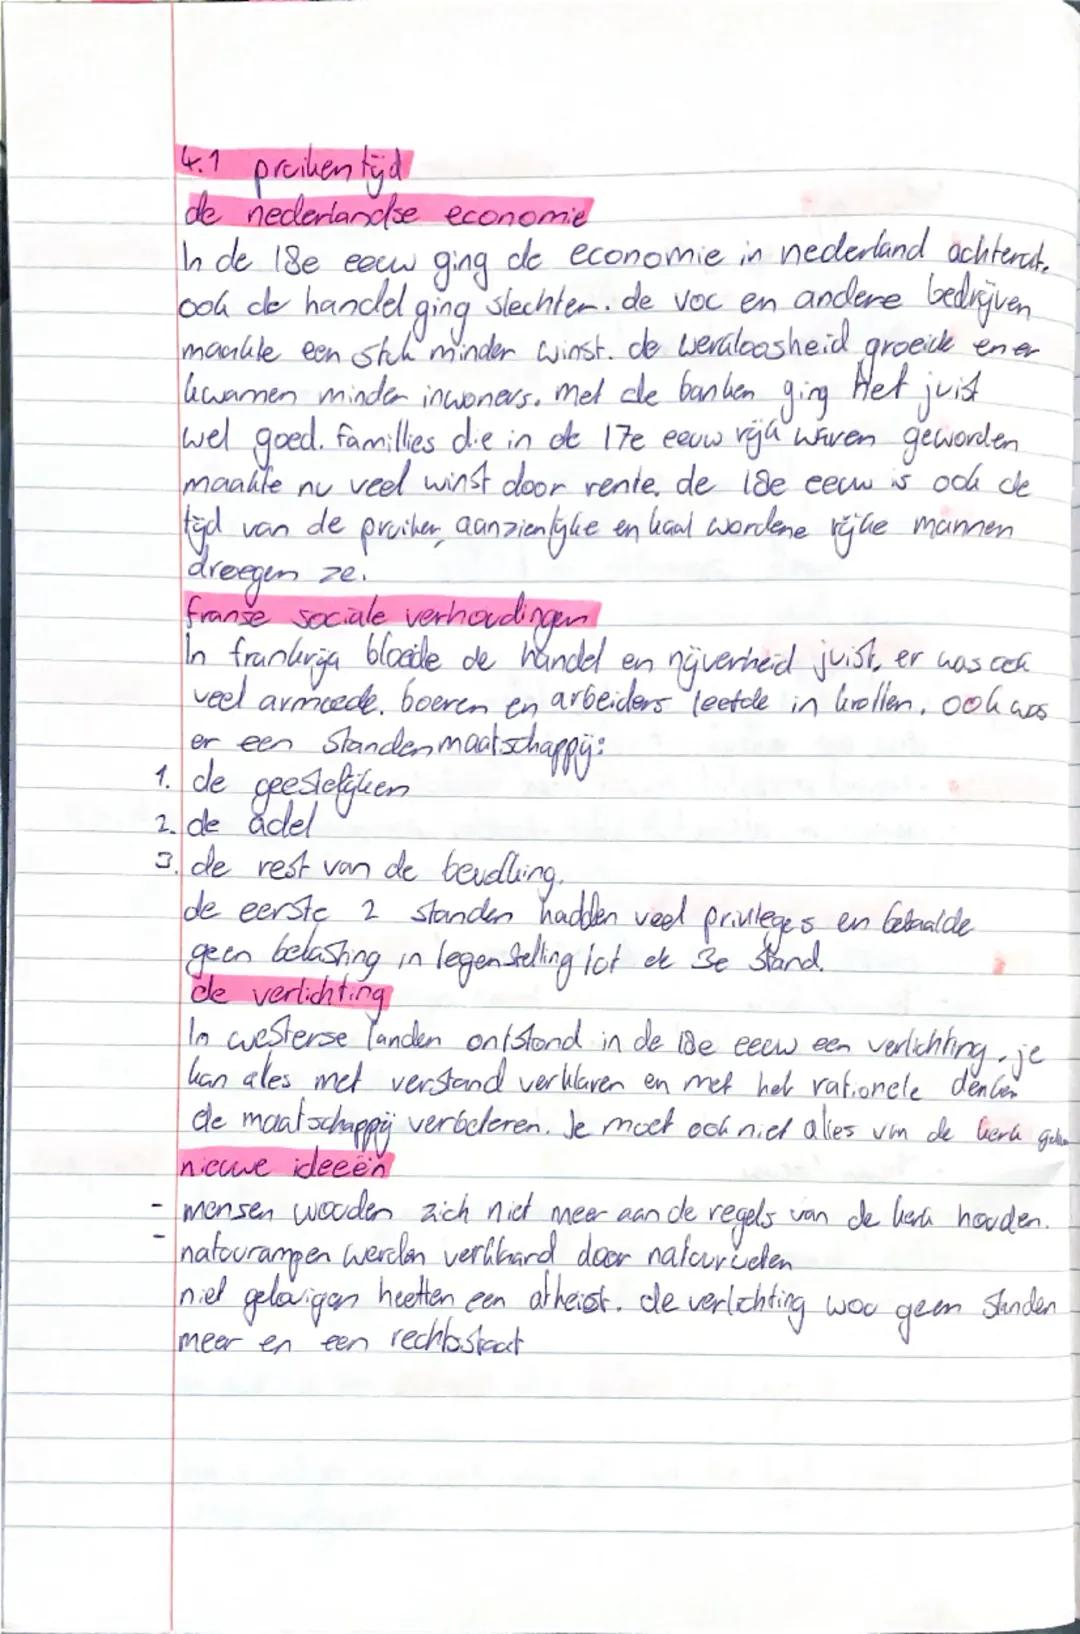 4.1 pruiken tijd
de nederlandse economie
In de 18e eeuw ging de economie in nederland achteruit.
ook de handel ging slechter. de voc en andere bedrijven
maakte een stuk minder winst. de werkloosheid groeide en er
kwamen minder inwoners. met de banken ging Het juist
wel goed. famillies die in de 17e eeuw rijk waren geworden
maakte nu veel winst door rente. de 18e eeuw is ook de
tijd van de pruiken, aanzienlijke en kaal wordene rijke mannen
droegen ze.
franse sociale verhoudingen
In frankrijk bloeide de handel en nijverheid juist, er was ook
veel armoede. boeren en arbeiders leefde in krotten. ook was
er een standenmaatschappij:
1. de geestelijken
2. de adel
3. de rest van de bevolking.
de eerste 2 standen hadden veel privileges en betaalde
geen belasting in tegenstelling tot de 3e stand.
de verlichting
In westerse landen ontstond in de 18e eeuw een verlichting. je
kan alles met verstand verklaren en met het rationele denken
de maatschappij verbeteren. Je moet ook niet alles van de kerk
nieuwe ideeën
- mensen wouden zich niet meer aan de regels van de kerk houden.
- natuurampen werden verklaard door
niet gelovigen heetten een atheist. de verlichting wou geen standen
meer en een rechtsstaat